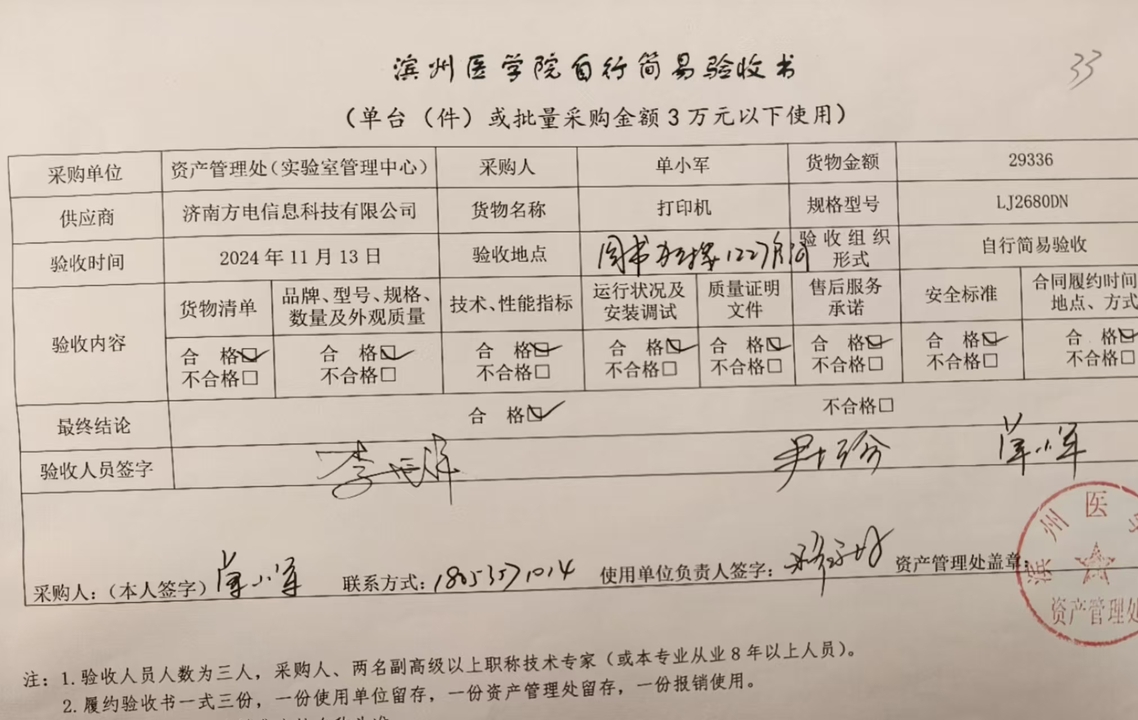 滨州医学院自行简易验收书
33
（单台（件）或批量采购金额3万元以下使用）
采购单位 资产管理处（实验室管理中心） 采购人 单小军 货物金额 29336
供应商 济南方电信息科技有限公司 货物名称 打印机 规格型号 LJ2680DN
验收时间 2024年11月13日 验收地点 图书 1227房间 验收组织形式 自行简易验收
验收内容 货物清单 品牌、型号、规格、数量及外观质量 技术、性能指标 运行状况及安装调试 质量证明文件 售后服务承诺 安全标准 合同履约时间 地点、方式
合 格☑ 合 格☑ 合 格☑ 合 格☑ 合 格☑ 合 格☑ 合 格☑ 合 格☑
不合格□ 不合格□ 不合格□ 不合格□ 不合格□ 不合格□ 不合格□ 不合格□
最终结论 合 格☑ 不合格□
验收人员签字 单小军
采购人：（本人签字）单小军 联系方式：18053571014 使用单位负责人签字： 资产管理处盖章：
滨州医学
资产管理处
注：1.验收人员人数为三人，采购人、两名副高级以上职称技术专家（或本专业从业8年以上人员）。
2.履约验收书一式三份，一份使用单位留存，一份资产管理处留存，一份报销使用。